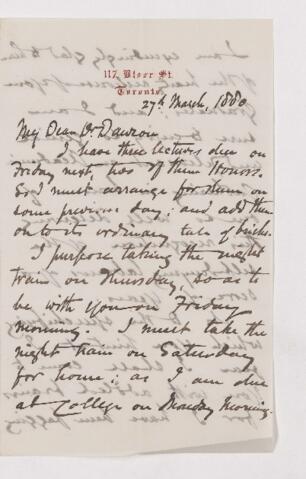 117, Bloor St.
Toronto
27th March, 1880
My Dear Dr Dawson
I have three lectures due on
Friday next, two of them Honors.
So I must arrange for them on
some previous day; and add them
on to its ordinary tale of bricks.
I purpose taking the night
train on Thursday, so as to
be with you on Friday
morning. I must take the
night train on Saturday
for home; as I am due
at College on Monday morning.